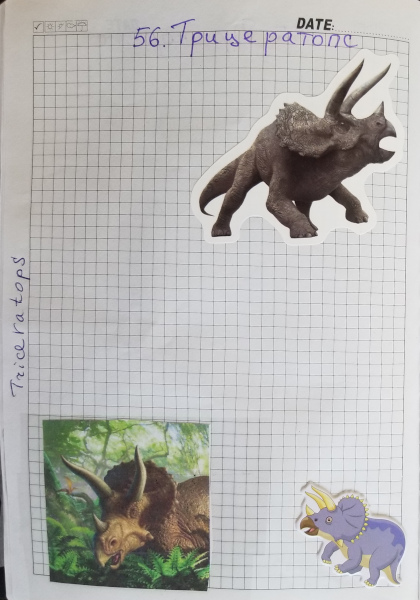 DATE:
56. Трицератопс
Triceratops